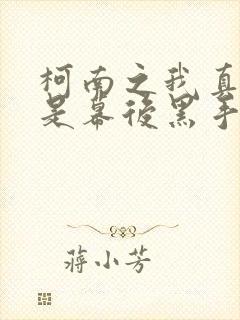 柯南之我真
是幕後黑手
蔣小芳